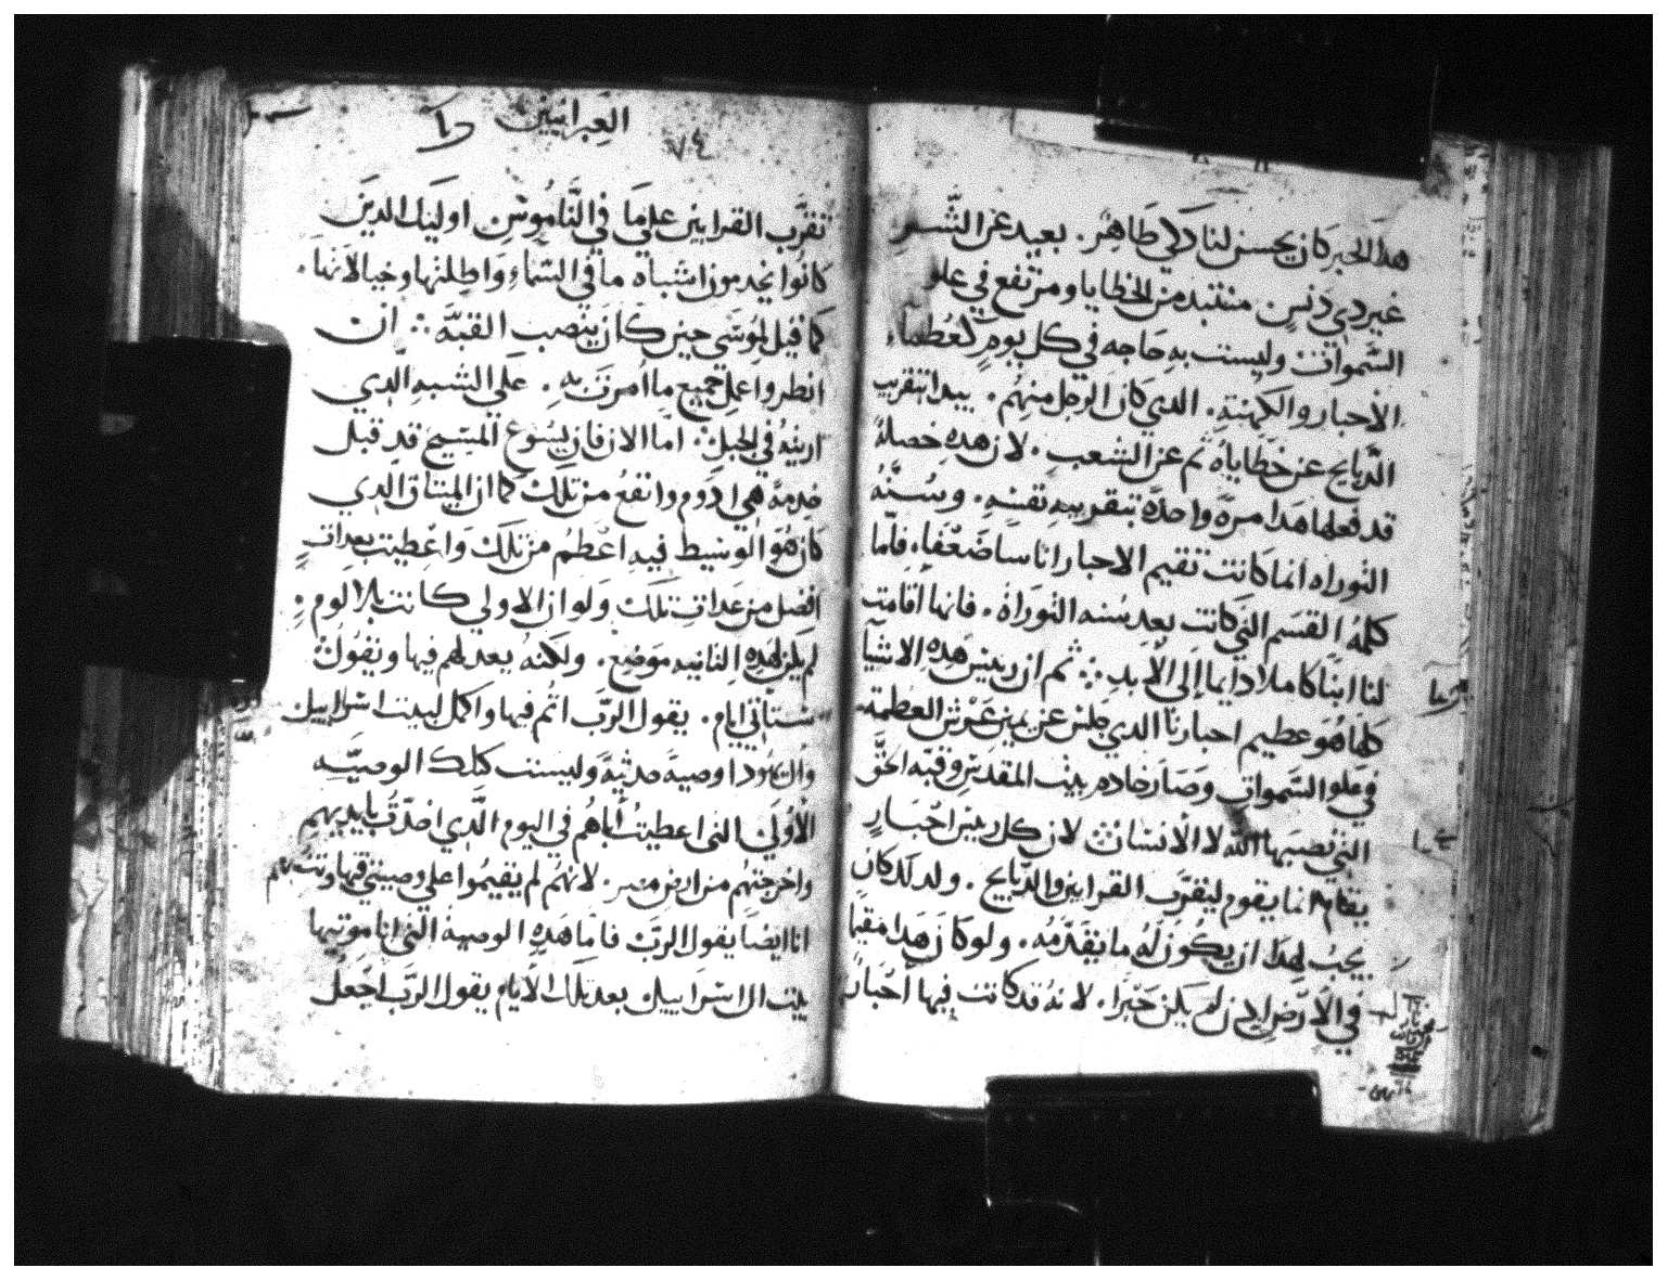 هذا الحبر كان يحسن لنا دكي طاهر. بعيد عن الشر
غير دي دنس منتبد من الخطايا ومرتفع في علو
السموات وليست به حاجه في كل يوم كعظماء
الأحبار والكهنة. الدي كان الرجل منهم. يبدا بتقريب
الدبايح عن خطاياه ثم عن الشعب. لان هده خصلة
قد فعلها هدا مرة واحدة بتقريبه نفسه. وسنة
التوراه انما كانت تقيم الاحبار اناسا ضعفاء فاما
كلمة القسم التي كانت بعد سنه التوراة. فانها اقامت
لنا ابنا كاملا دايما إلى الأبد ثم ان رييس هده الاشيا
كلها هو عظيم احبارنا الدي جلس عن يمين عرش العظمة
في علو السموات وصار خادم بيت المقدس وقبة الحق
التي نصبها الله لا الانسان لان كل رييس احبار
يقام انما يقوم ليقرب القرابين والدبايح. ولدلك كان
يجب لهدا ان يكون له ما يقدمه. ولو كان هدا مقيما
في الارض ادن لم يكن حبرا. لانه قد كانت فيها احبار
العبرانيين
٧٤
تقرب القرابين على ما في الناموس اوليك الدين
كانوا يخدمون اشباه ما في السماء واظلتها وخيالاتها.
كما قيل لموسى حين كان ينصب القبة ان
انظر واعمل جميع ما امرت به. على الشبه الدي
اريته في الجبل اما الان فان يسوع المسيح قد قبل
خدمة هي ادوم وانفع من تلك كما ان الميتاق الدي
كان هو الوسيط فيه اعظم من تلك واعطيت بعدات
افضل من عدات تلك ولو ان الاولي كانت بلا لوم
لم يكن لهده الثانيه موضع. ولكنه يعدلهم فيها ويقول
ستاتي ايام. يقول الرب اتم فيها واكمل لبيت اسراييل
وال يهودا وصية حديثة وليست كتلك الوصية
الأولى التي اعطيت أباهم في اليوم الدي اخدت بايديهم
واخرجتهم من ارض مصر. لانهم لم يقيموا علي وصيتي
انا ايضا يقول الرب فاما هده الوصية التي انا موتيها
بيت ال اسراييل بعد تلك الأيام يقول الرب اجعل